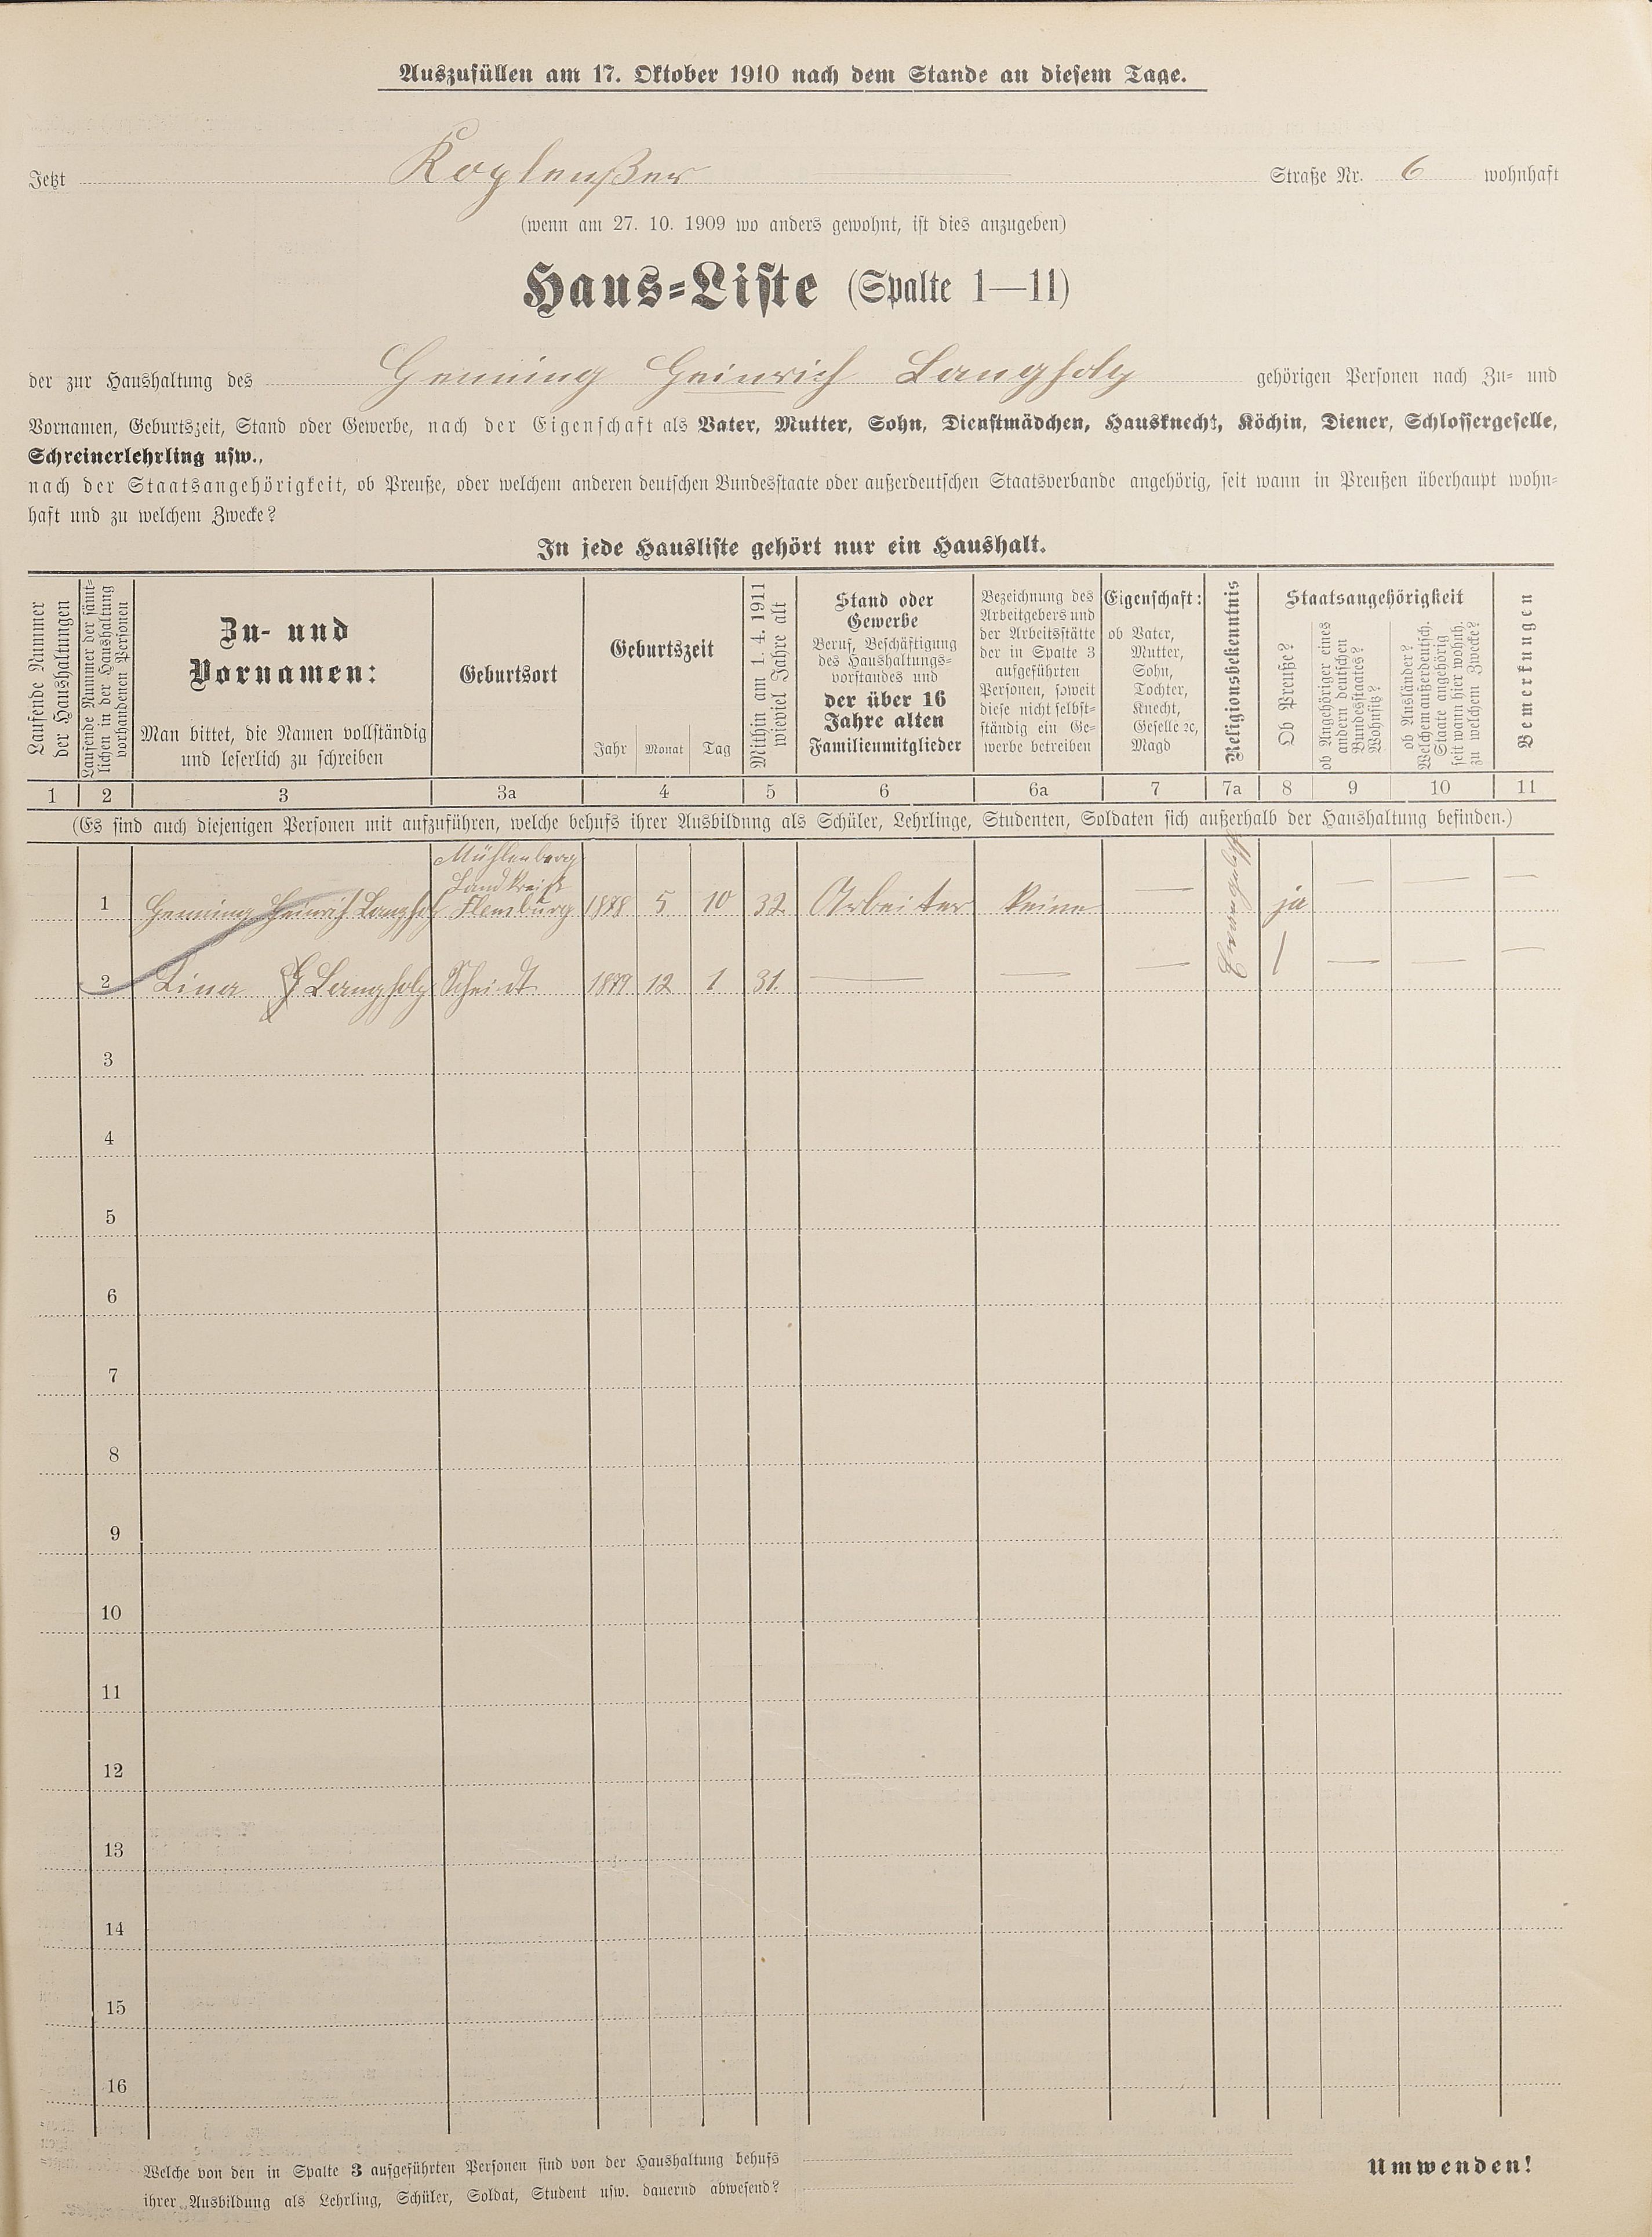 Auszufüllen am 17. Oktober 1910 nach dem Stande an diesem Tage.
Jetzt Straße Nr. 6 wohnhaft
(wenn am 27. 10. 1909 wo anders gewohnt, ist dies anzugeben)
Haus-Liste (Spalte 1—11)
der zur Haushaltung des Henning Heinrich Langholz gehörigen Personen nach Zu- und
Vornamen, Geburtszeit, Stand oder Gewerbe, nach der Eigenschaft als Vater, Mutter, Sohn, Dienstmädchen, Hausknecht, Köchin, Diener, Schlossergeselle,
Schreinerlehrling usw.,
nach der Staatsangehörigkeit, ob Preuße, oder welchem anderen deutschen Bundesstaate oder außerdeutschen Staatsverbande angehörig, seit wann in Preußen überhaupt wohn-
haft und zu welchem Zwecke?
In jede Hausliste gehört nur ein Haushalt.
Laufende Nummer
der Haushaltungen
Laufende Nummer der sämt-
lichen in der Haushaltung
vorhandenen Personen
Zu- und
Vornamen:
Man bittet, die Namen vollständig
und leserlich zu schreiben
Geburtsort
Geburtszeit
Jahr Monat Tag
Mithin am 1. 4. 1911
wieviel Jahre alt
Stand oder
Gewerbe
Beruf, Beschäftigung
des Haushaltungs-
vorstandes und
der über 16
Jahre alten
Familienmitglieder
Bezeichnung des
Arbeitgebers und
der Arbeitsstätte
der in Spalte 3
aufgeführten
Personen, soweit
diese nicht selbst-
ständig ein Ge-
werbe betreiben
Eigenschaft:
ob Vater,
Mutter,
Sohn,
Tochter,
Knecht,
Geselle ꝛc,
Magd
Religionsbekenntnis
Staatsangehörigkeit
Ob Preuße?
ob Angehöriger eines
andern deutschen
Bundesstaates?
Wohnsitz?
ob Ausländer?
Welchem außerdeutsch.
Staate angehörig
seit wann hier wohnh.
zu welchem Zwecke?
Bemerkungen
1 2 3 3a 4 5 6 6a 7 7a 8 9 10 11
(Es sind auch diejenigen Personen mit aufzuführen, welche behufs ihrer Ausbildung als Schüler, Lehrlinge, Studenten, Soldaten sich außerhalb der Haushaltung befinden.)
Mühlenberg
Landkreis
1 Henning Heinrich Langholz Flensburg 1878 5 10 32 Arbeiter keine — Evangelisch ja — — —
2 Lina Langholz Scheidt 1879 12 1 31 — — — / — — —
3
4
5
6
7
8
9
10
11
12
13
14
15
16
Welche von den in Spalte 3 aufgeführten Personen sind von der Haushaltung behufs
ihrer Ausbildung als Lehrling, Schüler, Soldat, Student usw. dauernd abwesend?
Umwenden!